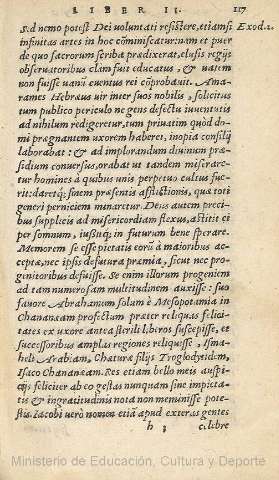 LIBER II. 117
sed nemo potest Dei voluntati resistere, etiamsi Exod.2.
infinitas artes in hoc cōminiscatur:nam et puer
de quo sacrorum scriba prædixerat, elusis regijs
observatoribus clam fuit educatus, & vatem
non fuisse vanū eventus rei cōprobavit. Ama-
rames Hebræus vir inter suos nobilis, sollicitus
tum publico periculo ne gens defectu iuventutis
ad nihilum redigeretur, tum privatim quòd do-
mi prægnantem uxorem haberet, inopia consilij
laborabat: & ad implorandum divinum præ-
sidium conversus, orabat ut tandem miserare-
tur homines à quibus unis perpetuo cultus fue-
rit:daretq́; finem præsentis afflictionis, quæ toti
generi perniciem minaretur. Deus autem preci-
bus supplicis ad misericordiam flexus, astitit ei
per somnum, iußitq́; in futurum bene sperare.
Memorem se esse pietatis eorū à maioribus ac-
ceptæ,nec ipsis defuturā præmia, sicut nec pro-
genitoribus defuisse. Se enim illorum progeniem
ad tam numerosam multitudinem auxisse: suo
favore Abrahamum solum è Mesopotamia in
Chananæam profectum præter reliquas felici-
tates ex uxore antea sterili liberos suscepisse, et
successoribus amplas regiones reliquisse, Isma-
heli Arabiam, Chaturæ filijs Troglodytidem,
Isaco Chananæam. Res etiam bello meis auspi-
cijs feliciter ab eo gestas nunquam sine impieta-
tis & ingratitudinis nota non meminisse pote-
stis. Iacobi verò nomen etiā apud exteras gentes
h 3 celebre
Ministerio de Educación, Cultura y Deporte